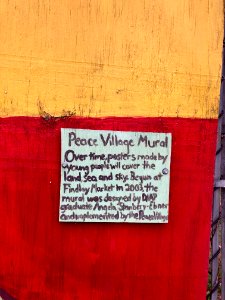 Peace Village Mural
Over time, posters made by
young people will cover the
land, sea, and sky. Begun at
Findlay Market in 2003, the
mural was designed by DAAP
graduate Angela
and by the Peace Village